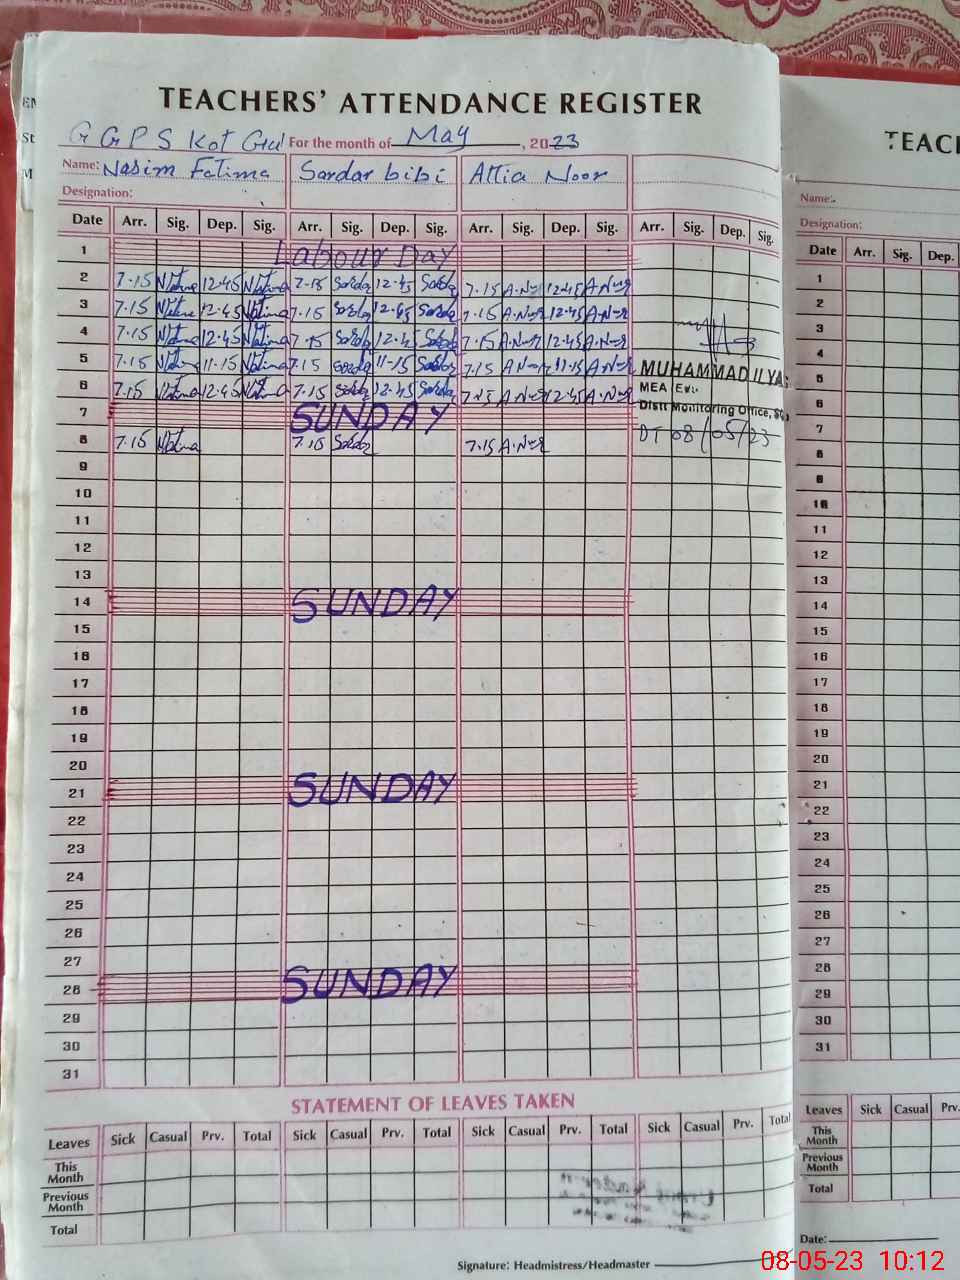 TEACHERS' ATTENDANCE REGISTER
G G P S Kot Gul For the month of May, 2023
Name: Nasim Fatima Sardar bibi Attia Noor
Designation:
Date Arr. Sig. Dep. Sig. Arr. Sig. Dep. Sig. Arr. Sig. Dep. Sig. Arr. Sig. Dep. Sig.
1 Labour Day
2 7.15 12.45 7.15 12.45 7.15 A.Noor 12.45 A.Noor
3 7.15 12.45 7.15 12.45 7.15 A.Noor 12.45 A.Noor
4 7.15 12.45 7.15 12.45 7.15 A.Noor 12.45 A.Noor
5 7.15 11.15 7.15 11.15 7.15 A.Noor 11.15 A.Noor
MUHAMMAD ILYAS
6 7.15 12.45 7.15 12.45 7.15 A.Noor 12.45 A.Noor
MEA
Distt Monitoring Office,
7 SUNDAY
DT 08/05/23
8 7.15 7.15 7.15 A.Noor
9
10
11
12
13
14 SUNDAY
15
16
17
18
19
20
21 SUNDAY
22
23
24
25
26
27
28 SUNDAY
29
30
31
STATEMENT OF LEAVES TAKEN
Leaves Sick Casual Prv. Total Sick Casual Prv. Total Sick Casual Prv. Total Sick Casual Prv. Total
This Month
Previous Month
Total
Signature: Headmistress/Headmaster
TEAC
Name:
Designation:
Date Arr. Sig. Dep.
1
2
3
4
5
6
7
8
9
10
11
12
13
14
15
16
17
18
19
20
21
22
23
24
25
26
27
28
29
30
31
Leaves Sick Casual Prv.
This Month
Previous Month
Total
Date:
08-05-23 10:12